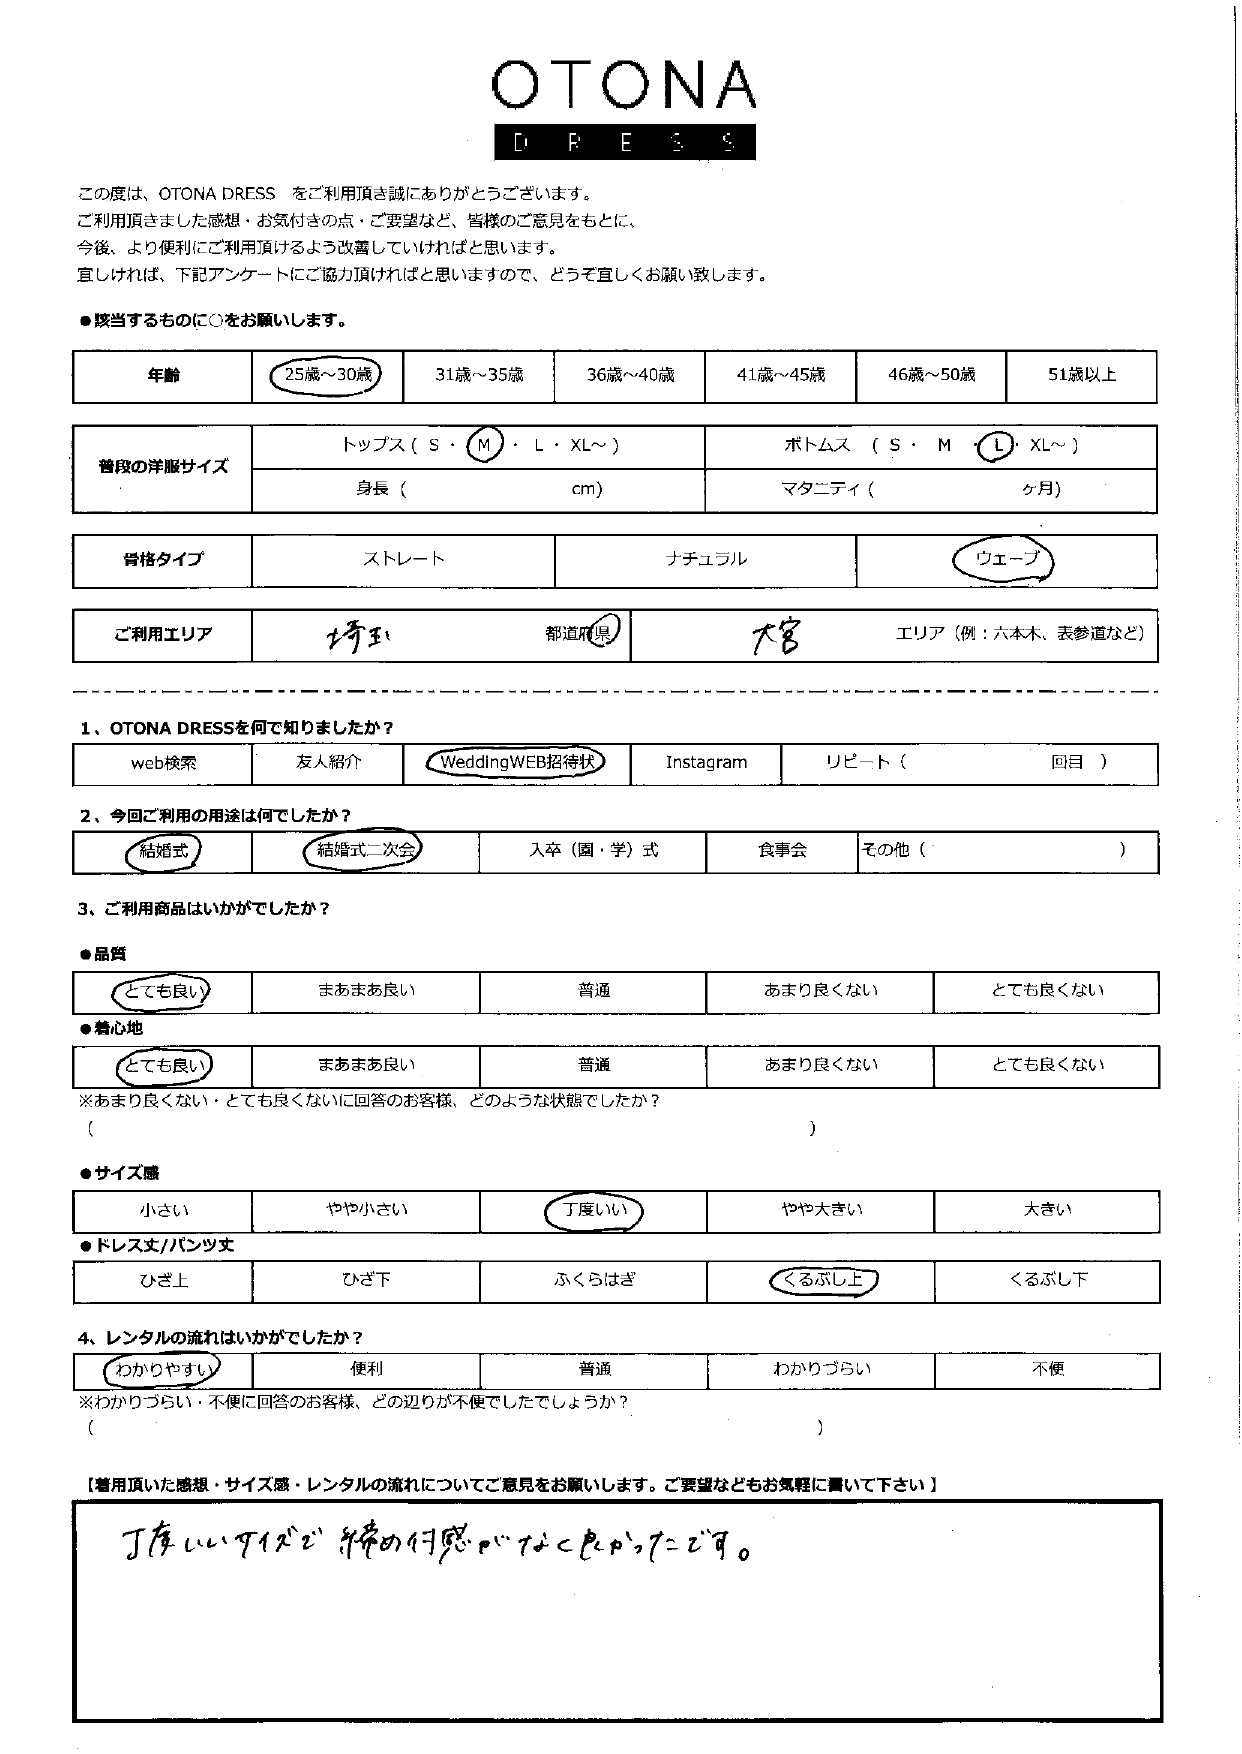 OTONA
DRESS
この度は、OTONA DRESS　をご利用頂き誠にありがとうございます。
ご利用頂きました感想・お気付きの点・ご要望など、皆様のご意見をもとに、
今後、より便利にご利用頂けるよう改善していければと思います。
宜しければ、下記アンケートにご協力頂ければと思いますので、どうぞ宜しくお願い致します。
●該当するものに○をお願いします。
年齢 25歳～30歳 31歳～35歳 36歳～40歳 41歳～45歳 46歳～50歳 51歳以上
普段の洋服サイズ
トップス ( S ・ M ・ L ・ XL～ ) ボトムス ( S ・ M ・ L ・ XL～ )
身長 ( cm) マタニティ ( ヶ月)
骨格タイプ ストレート ナチュラル ウェーブ
ご利用エリア 埼玉 都道府県 大宮 エリア（例：六本木、表参道など）
1、OTONA DRESSを何で知りましたか？
web検索 友人紹介 WeddingWEB招待状 Instagram リピート（ 回目 ）
2、今回ご利用の用途は何でしたか？
結婚式 結婚式二次会 入卒（園・学）式 食事会 その他（ ）
3、ご利用商品はいかがでしたか？
●品質
とても良い まあまあ良い 普通 あまり良くない とても良くない
●着心地
とても良い まあまあ良い 普通 あまり良くない とても良くない
※あまり良くない・とても良くないに回答のお客様、どのような状態でしたか？
( )
●サイズ感
小さい やや小さい 丁度いい やや大きい 大きい
●ドレス丈/パンツ丈
ひざ上 ひざ下 ふくらはぎ くるぶし上 くるぶし下
4、レンタルの流れはいかがでしたか？
わかりやすい 便利 普通 わかりづらい 不便
※わかりづらい・不便に回答のお客様、どの辺りが不便でしたでしょうか？
( )
【着用頂いた感想・サイズ感・レンタルの流れについてご意見をお願いします。ご要望などもお気軽に書いて下さい】
丁度いいサイズで締め付感がなく良かったです。